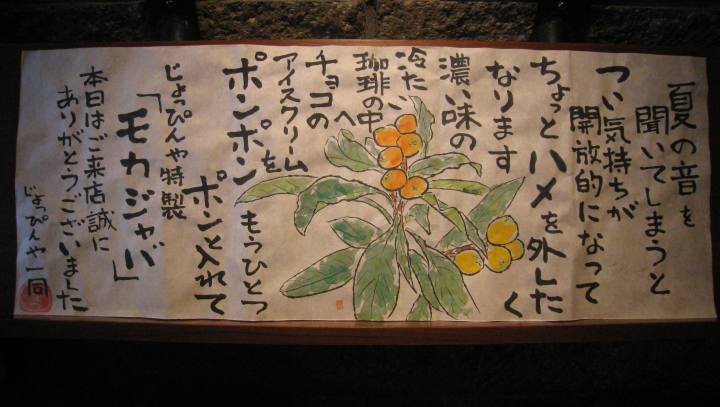 夏の音を
聞いてしまうと
つい気持ちが
開放的になって
ちょっとハメを外したく
なります
濃い味の
冷たい
珈琲の中へ
チョコの
アイスクリームを
ポンポン
もうひとつ
ポンと入れて
じょっぴんや特製
「モカジャバ」
本日はご来店誠に
ありがとうございました
じょっぴんや一同